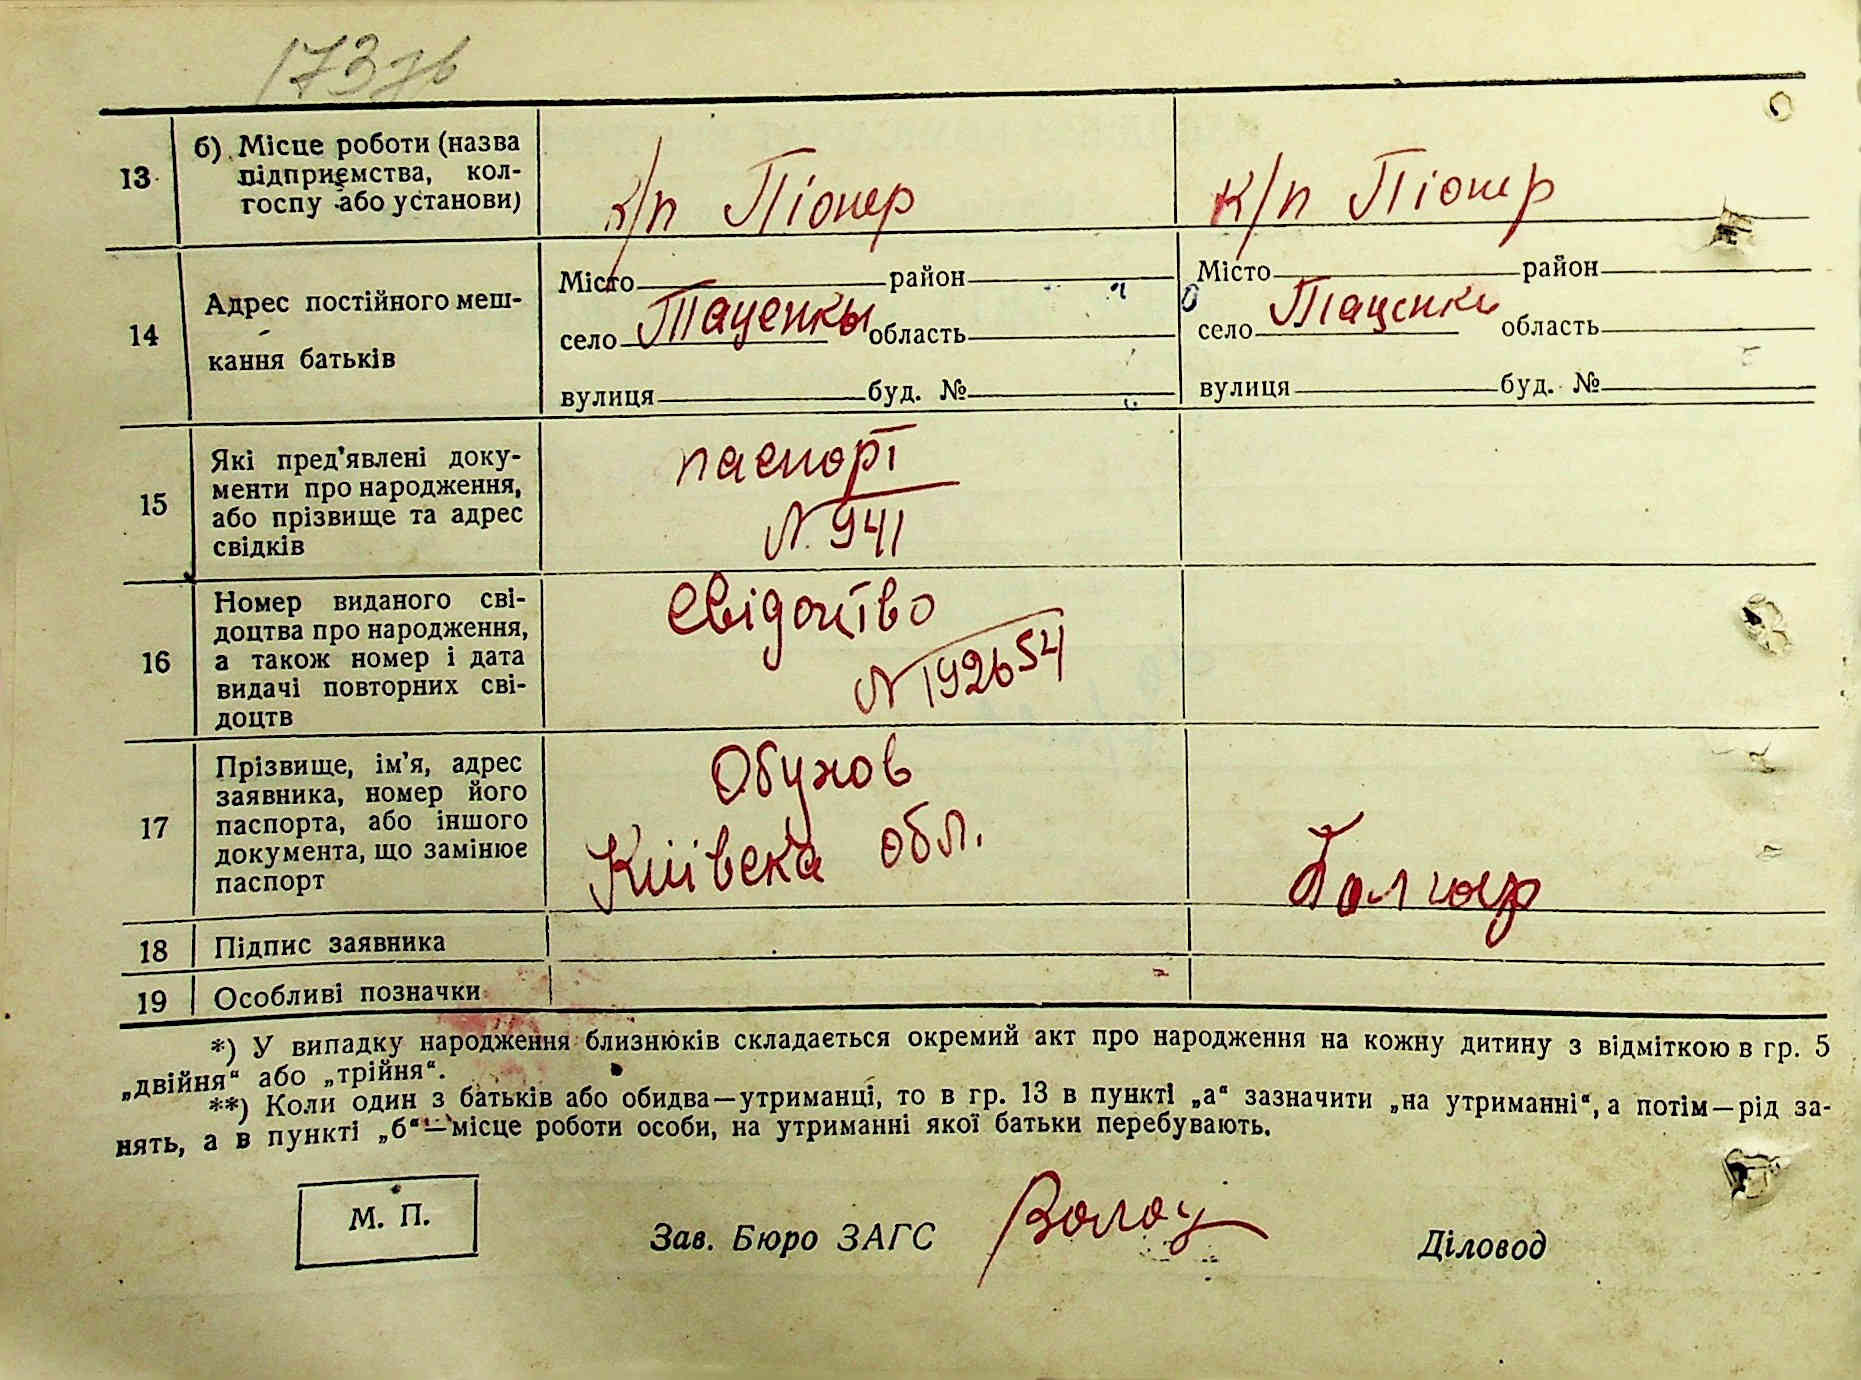 173зв
13
б) Місце роботи (назва
підприємства, кол-
госпу або установи)
к/п Піонер
к/п Піонер
14
Адрес постійного меш-
кання батьків
Місто район
село Таценкы область
вулиця буд. №
Місто район
село Таценки область
вулиця буд. №
15
Які пред'явлені доку-
менти про народження,
або прізвище та адрес
свідків
паспорт
N 941
16
Номер виданого сві-
доцтва про народження,
а також номер і дата
видачі повторних сві-
доцтв
Свідоцтво
N 192654
17
Прізвище, ім'я, адрес
заявника, номер його
паспорта, або іншого
документа, що замінює
паспорт
Обухов
Київска обл.
18
Підпис заявника
19
Особливі позначки
*) У випадку народження близнюків складається окремий акт про народження на кожну дитину з відміткою в гр. 5
„двійня“ або „трійня“.
**) Коли один з батьків або обидва—утриманці, то в гр. 13 в пункті „а“ зазначити „на утриманні“, а потім—рід за-
нять, а в пункті „б“—місце роботи особи, на утриманні якої батьки перебувають.
М. П.
Зав. Бюро ЗАГС
Діловод